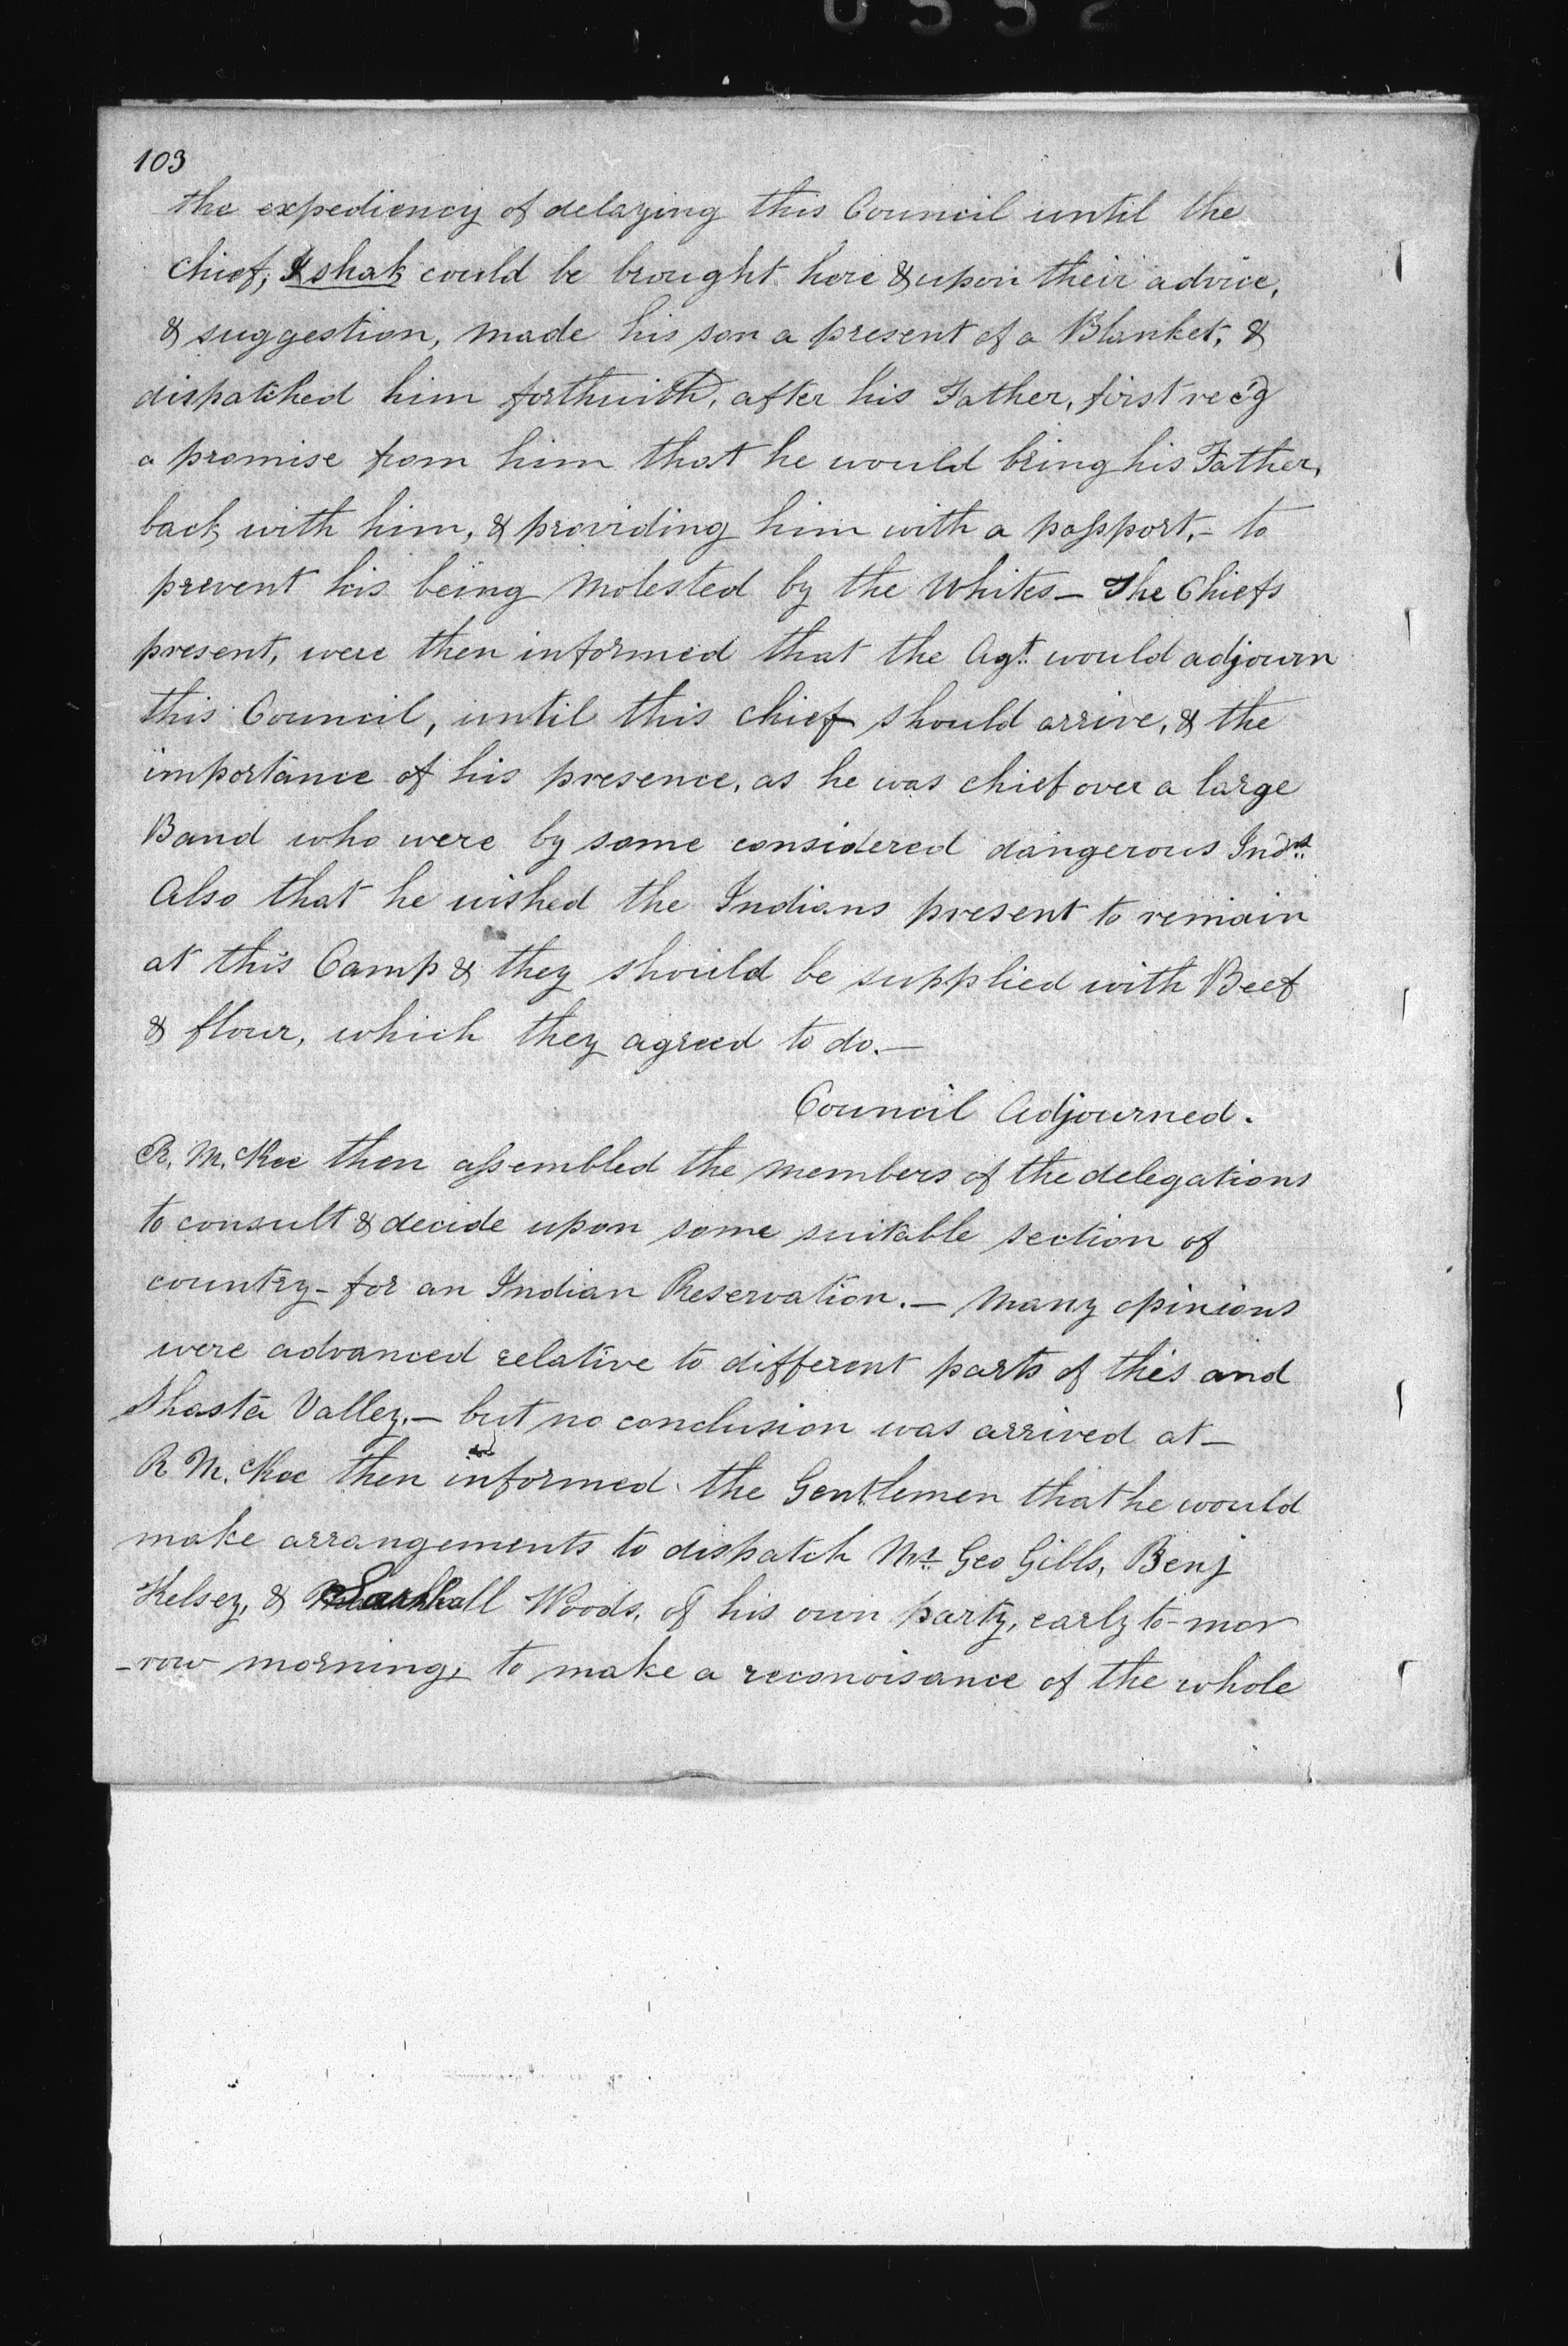 0552
103
the expediency of delaying this Council until the
chief, Ishak could be brought here & upon their advice,
& suggestion, made his son a present of a Blanket, &
dispatched him forthwith, after his Father, first rec'g
a promise from him that he would bring his Father,
back with him, & providing him with a passport,- to
prevent his being molested by the Whites - The Chiefs
present, were then informed that the Agt. would adjourn
this Council, until this chief should arrive, & the
importance of his presence, as he was chief over a large
Band who were by some considered dangerous Inds.
Also that he wished the Indians present to remain
at this Camp & they should be supplied with Beef
& flour, which they agreed to do.-
Council Adjourned.
R. McKee then assembled the members of the delegations
to consult & decide upon some suitable section of
country - for an Indian Reservation. - Many opinions
were advanced relative to different parts of this and
Shasta Valley. - but no conclusion was arrived at -
R McKee then informed the Gentlemen that he would
make arrangements to dispatch Mr. Geo Gibbs, Benj
Kelsey, & Woods, of his own party, early to-mor
-row morning, to make a reconoisance of the whole